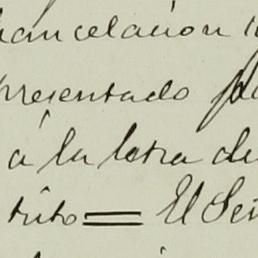 hancelacion
presentado
á la letra de
trito == El Señ